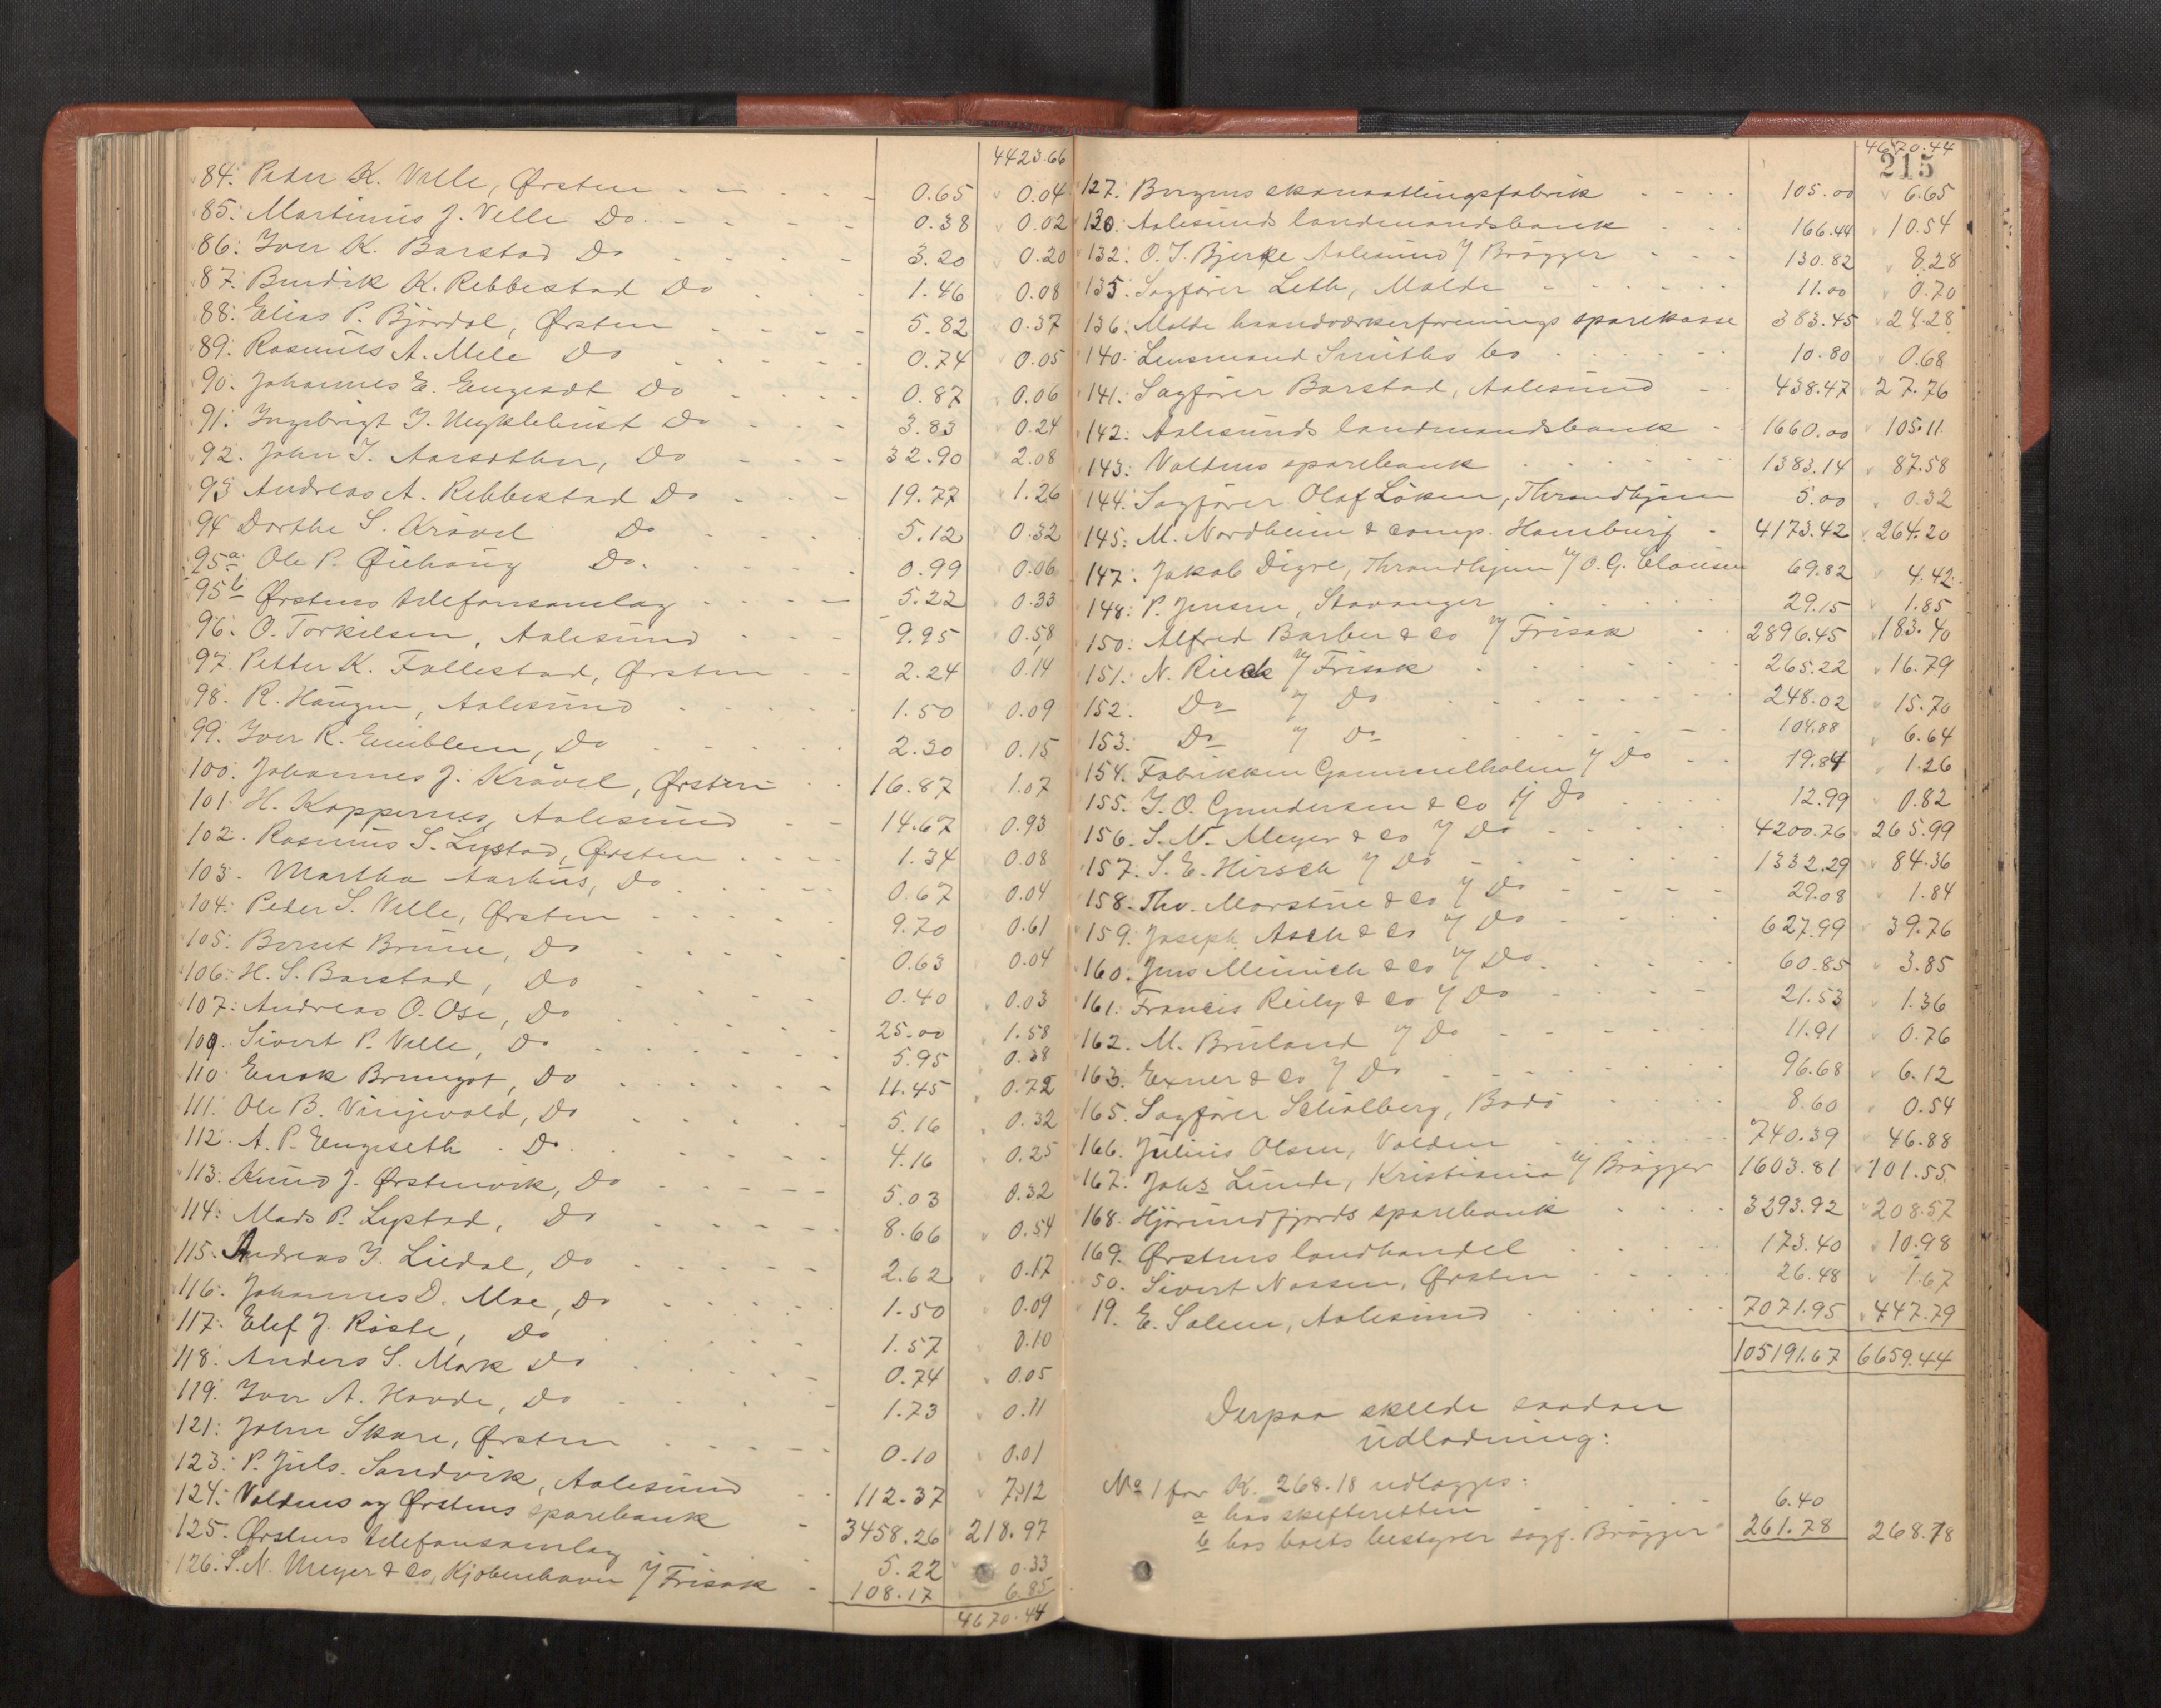 4423.66
84. Peter K. Velle, Ørsten 0.65 0.04
85. Martinus J. Velle Do 0.38 0.02
86. Iver K. Barstad Do 3.20 0.20
87. Bendik K. Rebbestad Do 1.46 0.08
88. Elias P. Bjørdal, Ørsten 5.82 0.37
89. Rasmus A. Mele Do 0.74 0.05
90. Johannes E. Engesæt Do 0.87 0.06
91. Ingebrigt I. Myklebust Do 3.83 0.24
92. John I. Aarsæther, Do 32.90 2.08
93 Andreas A. Rebbestad Do 19.77 1.26
94 Dorthe S. Krøvel Do 5.12 0.32
95a. Ole P. Øiehaug Do. 0.99 0.06
95b Ørstens telefonsamlag 5.22 0.33
96. O. Torkilsen, Aalesund 9.95 0.58
97. Petter K. Follestad, Ørsten 2.24 0.14
98. R. Haugen, Aalesund 1.50 0.09
99. Iver R. Emblem, Do 2.30 0.15
100. Johannes J. Krøvel, Ørsten 16.87 1.07
101. H. Koppernes, Aalesund 14.67 0.93
102. Rasmus S. Lystad, Ørsten 1.34 0.08
103. Martha Aarhus, Do 0.67 0.04
104. Peter S. Velle, Ørsten 9.70 0.61
105. Bernt Brune, Do 0.63 0.04
106. H. S. Barstad, Do 0.40 0.03
107. Andreas O. Ose, Do 25.00 1.58
109. Sivert P. Velle, Do 5.95 0.38
110. Enok Brungot, Do 11.45 0.72
111. Ole B. Vinjevold, Do 5.16 0.32
112. A. P. Engeseth Do 4.16 0.25
113. Knud J. Ørstenvik, Do 5.03 0.32
114. Mads P. Lystad, Do 8.66 0.54
115. Andreas I. Liedal, Do 2.62 0.17
116. Johannes D. Moe, Do 1.50 0.09
117. Elef J. Røste, Do 1.57 0.10
118. Anders S. Mork Do 0.74 0.05
119. Iver A. Hovde, Do 1.73 0.11
121. John Skare, Ørsten 0.10 0.01
123. P. Juls. Sandvik, Aalesund 112.37 7.12
124. Voldens og Ørstens sparebank 3458.26 218.97
125. Ørstens telefonsamlag 5.22 0.33
126. S. N. Meyer & Co, Kjøbenhavn v/ Frisak 108.17 6.85
4670.44
4670.44
215
127. Bergens skomaatlingsfabrik 105.00 6.65
130. Aalesunds landmandsbank 166.44 10.54
132. O. T. Bjerke Aalesund v/ Brøgger 130.82 8.28
135. Sagfører Leth, Molde 11.00 0.70
136. Molde haandværkerforenings sparekasse 383.45 24.28
140. Lensmand Smiths bo 10.80 0.68
141. Sagfører Barstad, Aalesund 438.47 27.76
142. Aalesunds landmandsbank 1660.00 105.11
143. Voldens sparebank 1383.14 87.58
144. Sagfører Olaf Løken, Throndhjem 5.00 0.32
145. M. Nordheim & comp. Hamburg 4173.42 264.20
147. Jakob Digre, Throndhjem v/ O. G. Clausen 69.82 4.42
148. P. Jensen, Stavanger 29.15 1.85
150. Alfred Barber & Co v/ Frisak 2896.45 183.40
151. N. Rieck v/ Frisak 265.22 16.79
152. Do v/ Do 248.02 15.70
153. Do v/ Do 104.88 6.64
154. Fabrikken Gammelholm v/ Do 19.84 1.26
155. I. O. Gundersen & Co v/ Do 12.99 0.82
156. S. N. Meyer & Co v/ Do 4200.76 265.99
157. S. E. Hirsch v/ Do 1332.29 84.36
158. Thv. Morstue & Co v/ Do 29.08 1.84
159. Joseph Asch & Co v/ Do 627.99 39.76
160. Jens Meinich & Co v/ Do 60.85 3.85
161. Francis Reily & Co v/ Do 21.53 1.36
162. M. Bruland v/ Do 11.91 0.76
163. Exner & Co v/ Do 96.68 6.12
165. Sagfører Schiølberg, Bodø 8.60 0.54
166. Julius Olsen, Volden 740.39 46.88
167. Johs Lunde, Kristiania v/ Brøgger 1603.81 101.55
168. Hjørundfjords sparebank 3293.92 208.57
169. Ørstens landhandel 173.40 10.98
50. Sivert Nossen, Ørsten 26.48 1.67
19. E. Solem, Aalesund 7071.95 447.79
105191.67 6659.44
Derpaa skeede saadan
udlodning:
No 1 for K. 268.18 udlægges:
a hos skifteretten 6.40
b hos boets bestyrer sagf. Brøgger 261.78 268.18